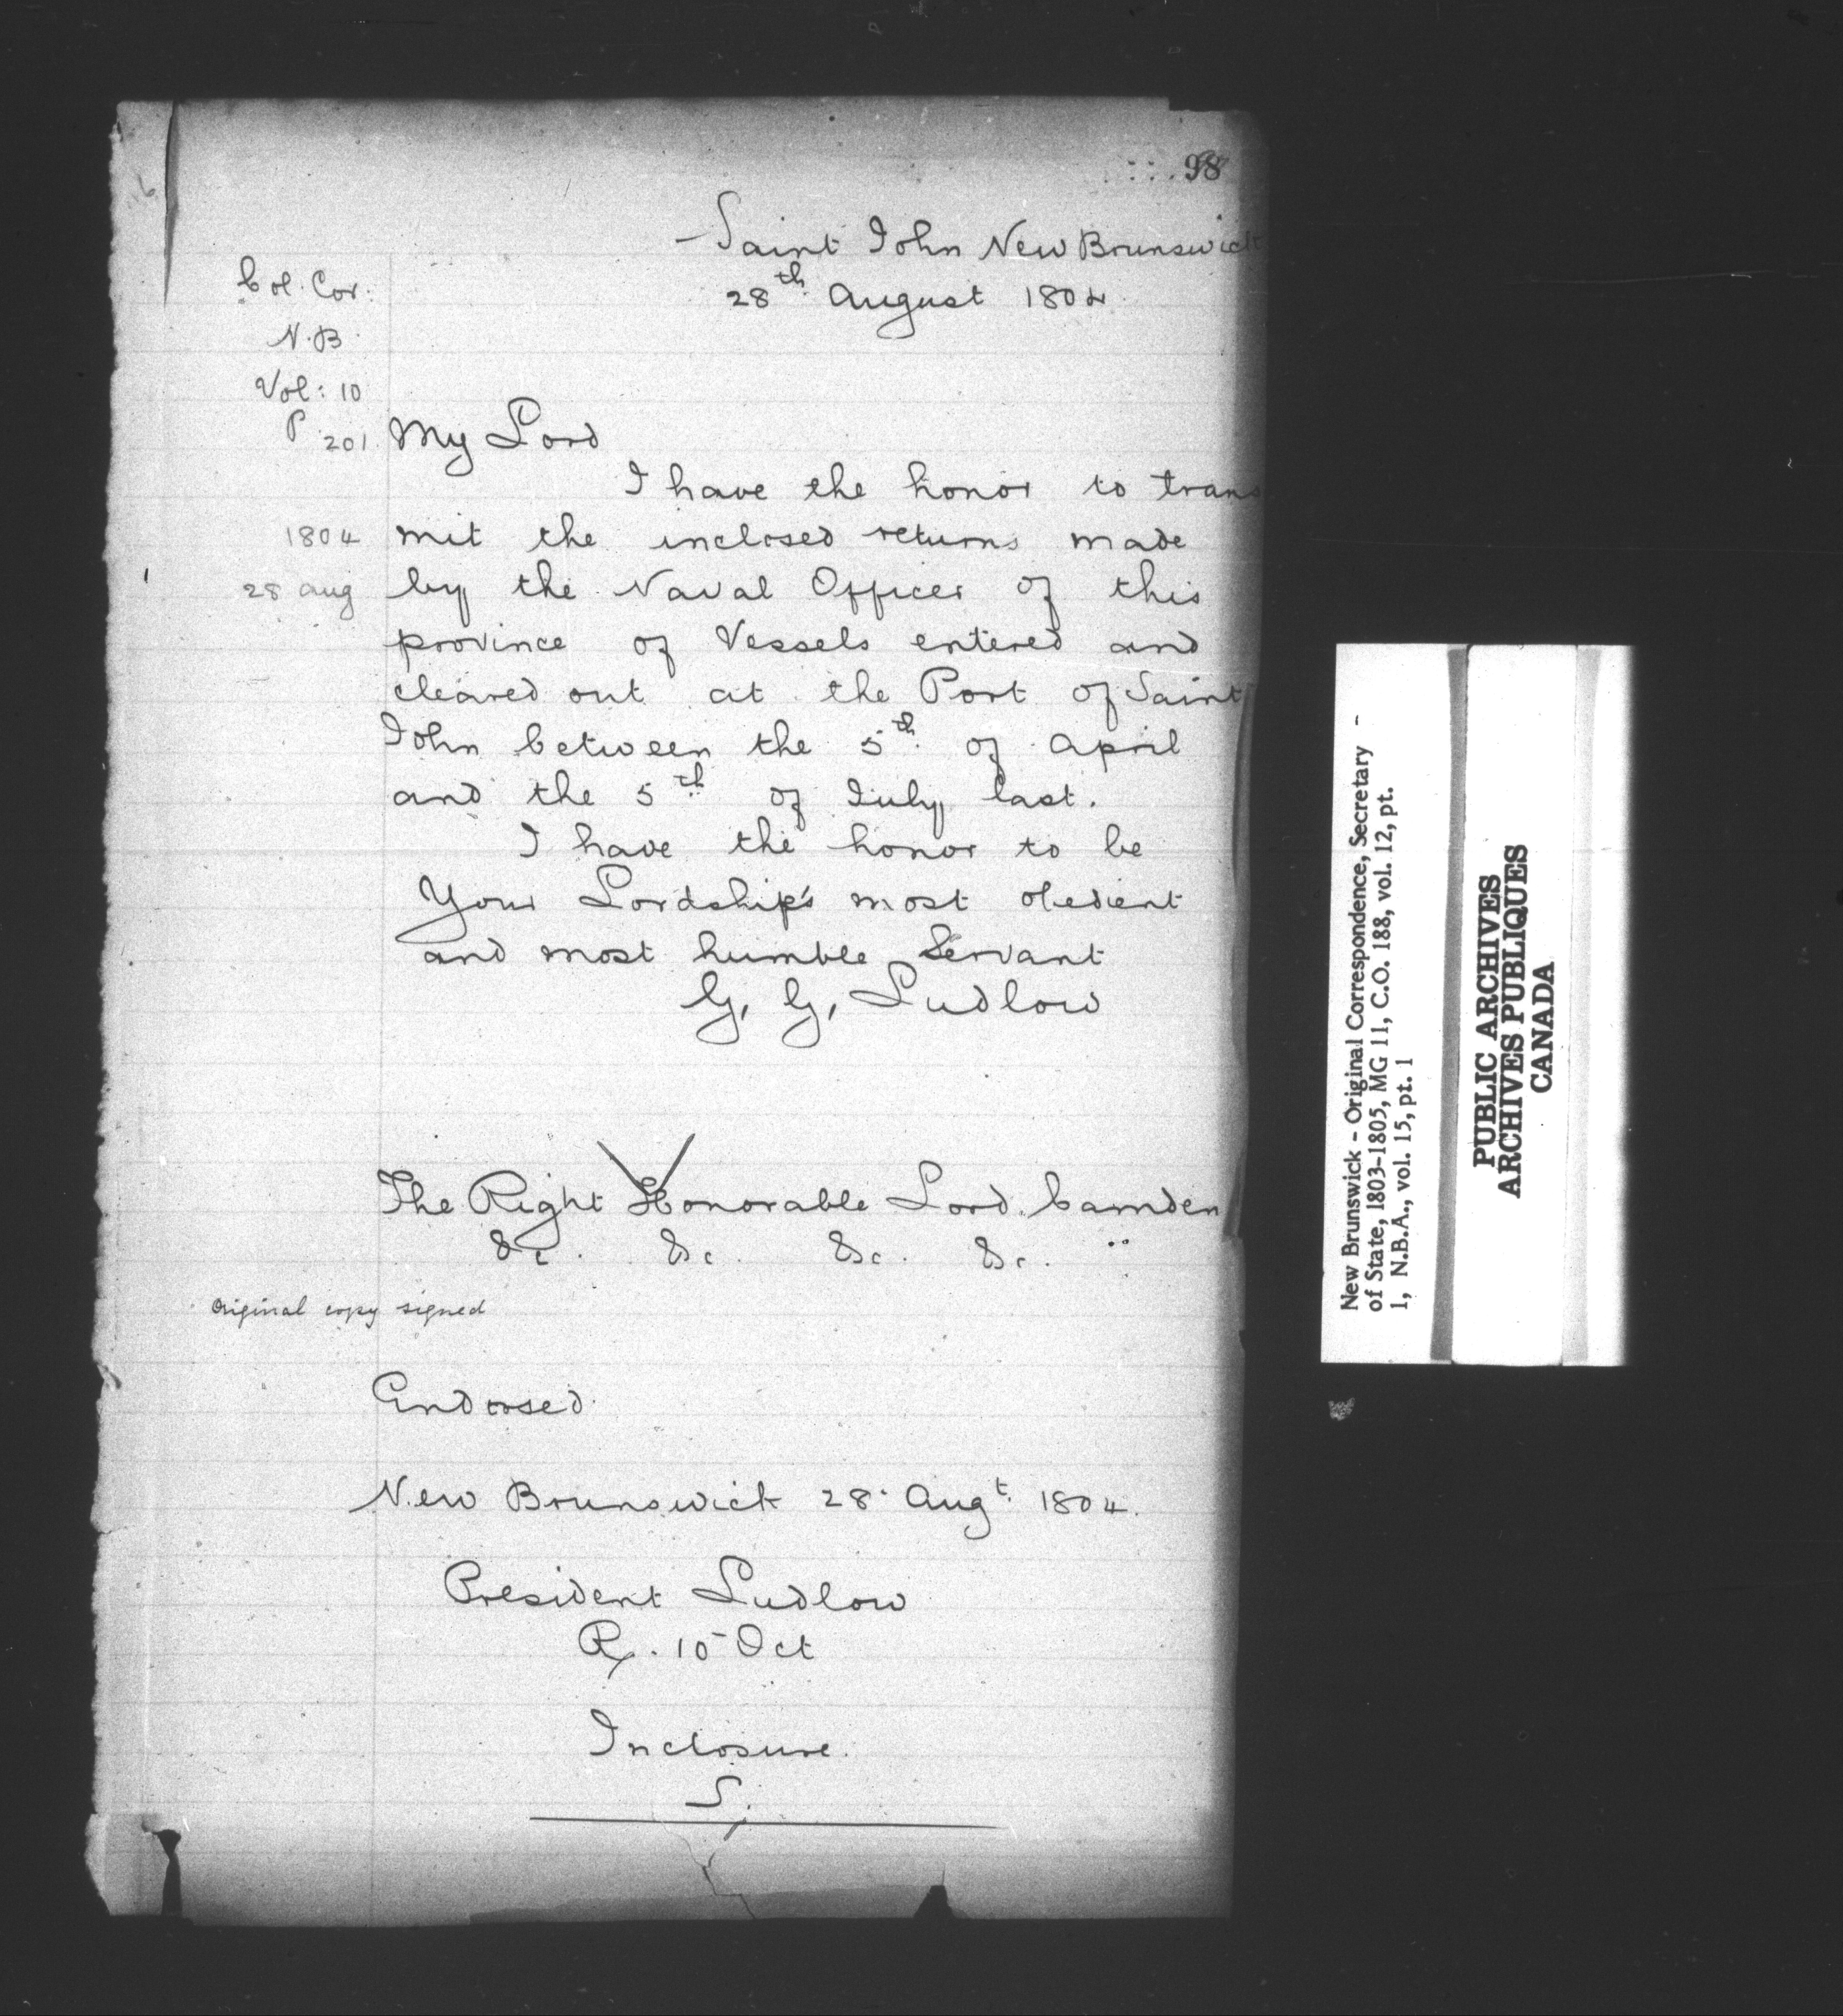 98
Saint John New Brunswick
28th August 1804
Col. Cor.
N.B
Vol: 10
P. 201
My Lord
I have the honor to trans
1804
mit the inclosed returns made
28 Aug
by the Naval Officer of this
province of Vessels entered and
cleared out at the Port of Saint
John between the 5th of April
and the 5th of July last.
I have the honor to be
Your Lordship's most obedient
and most humble Servant
G, G, Ludlow
The Right Honorable Lord Camden
&c. &c. &c. &c.
Original copy signed
Endorsed.
New Brunswick 28 Augt 1804.
President Ludlow
R. 10 Oct
Inclosure.
New Brunswick - Original Correspondence, Secretary -
of State, 1803-1805, MG 11, C.O. 188, vol. 12, pt.
1, N.B.A., vol. 15, pt. 1
PUBLIC ARCHIVES
ARCHIVES PUBLIQUES
CANADA